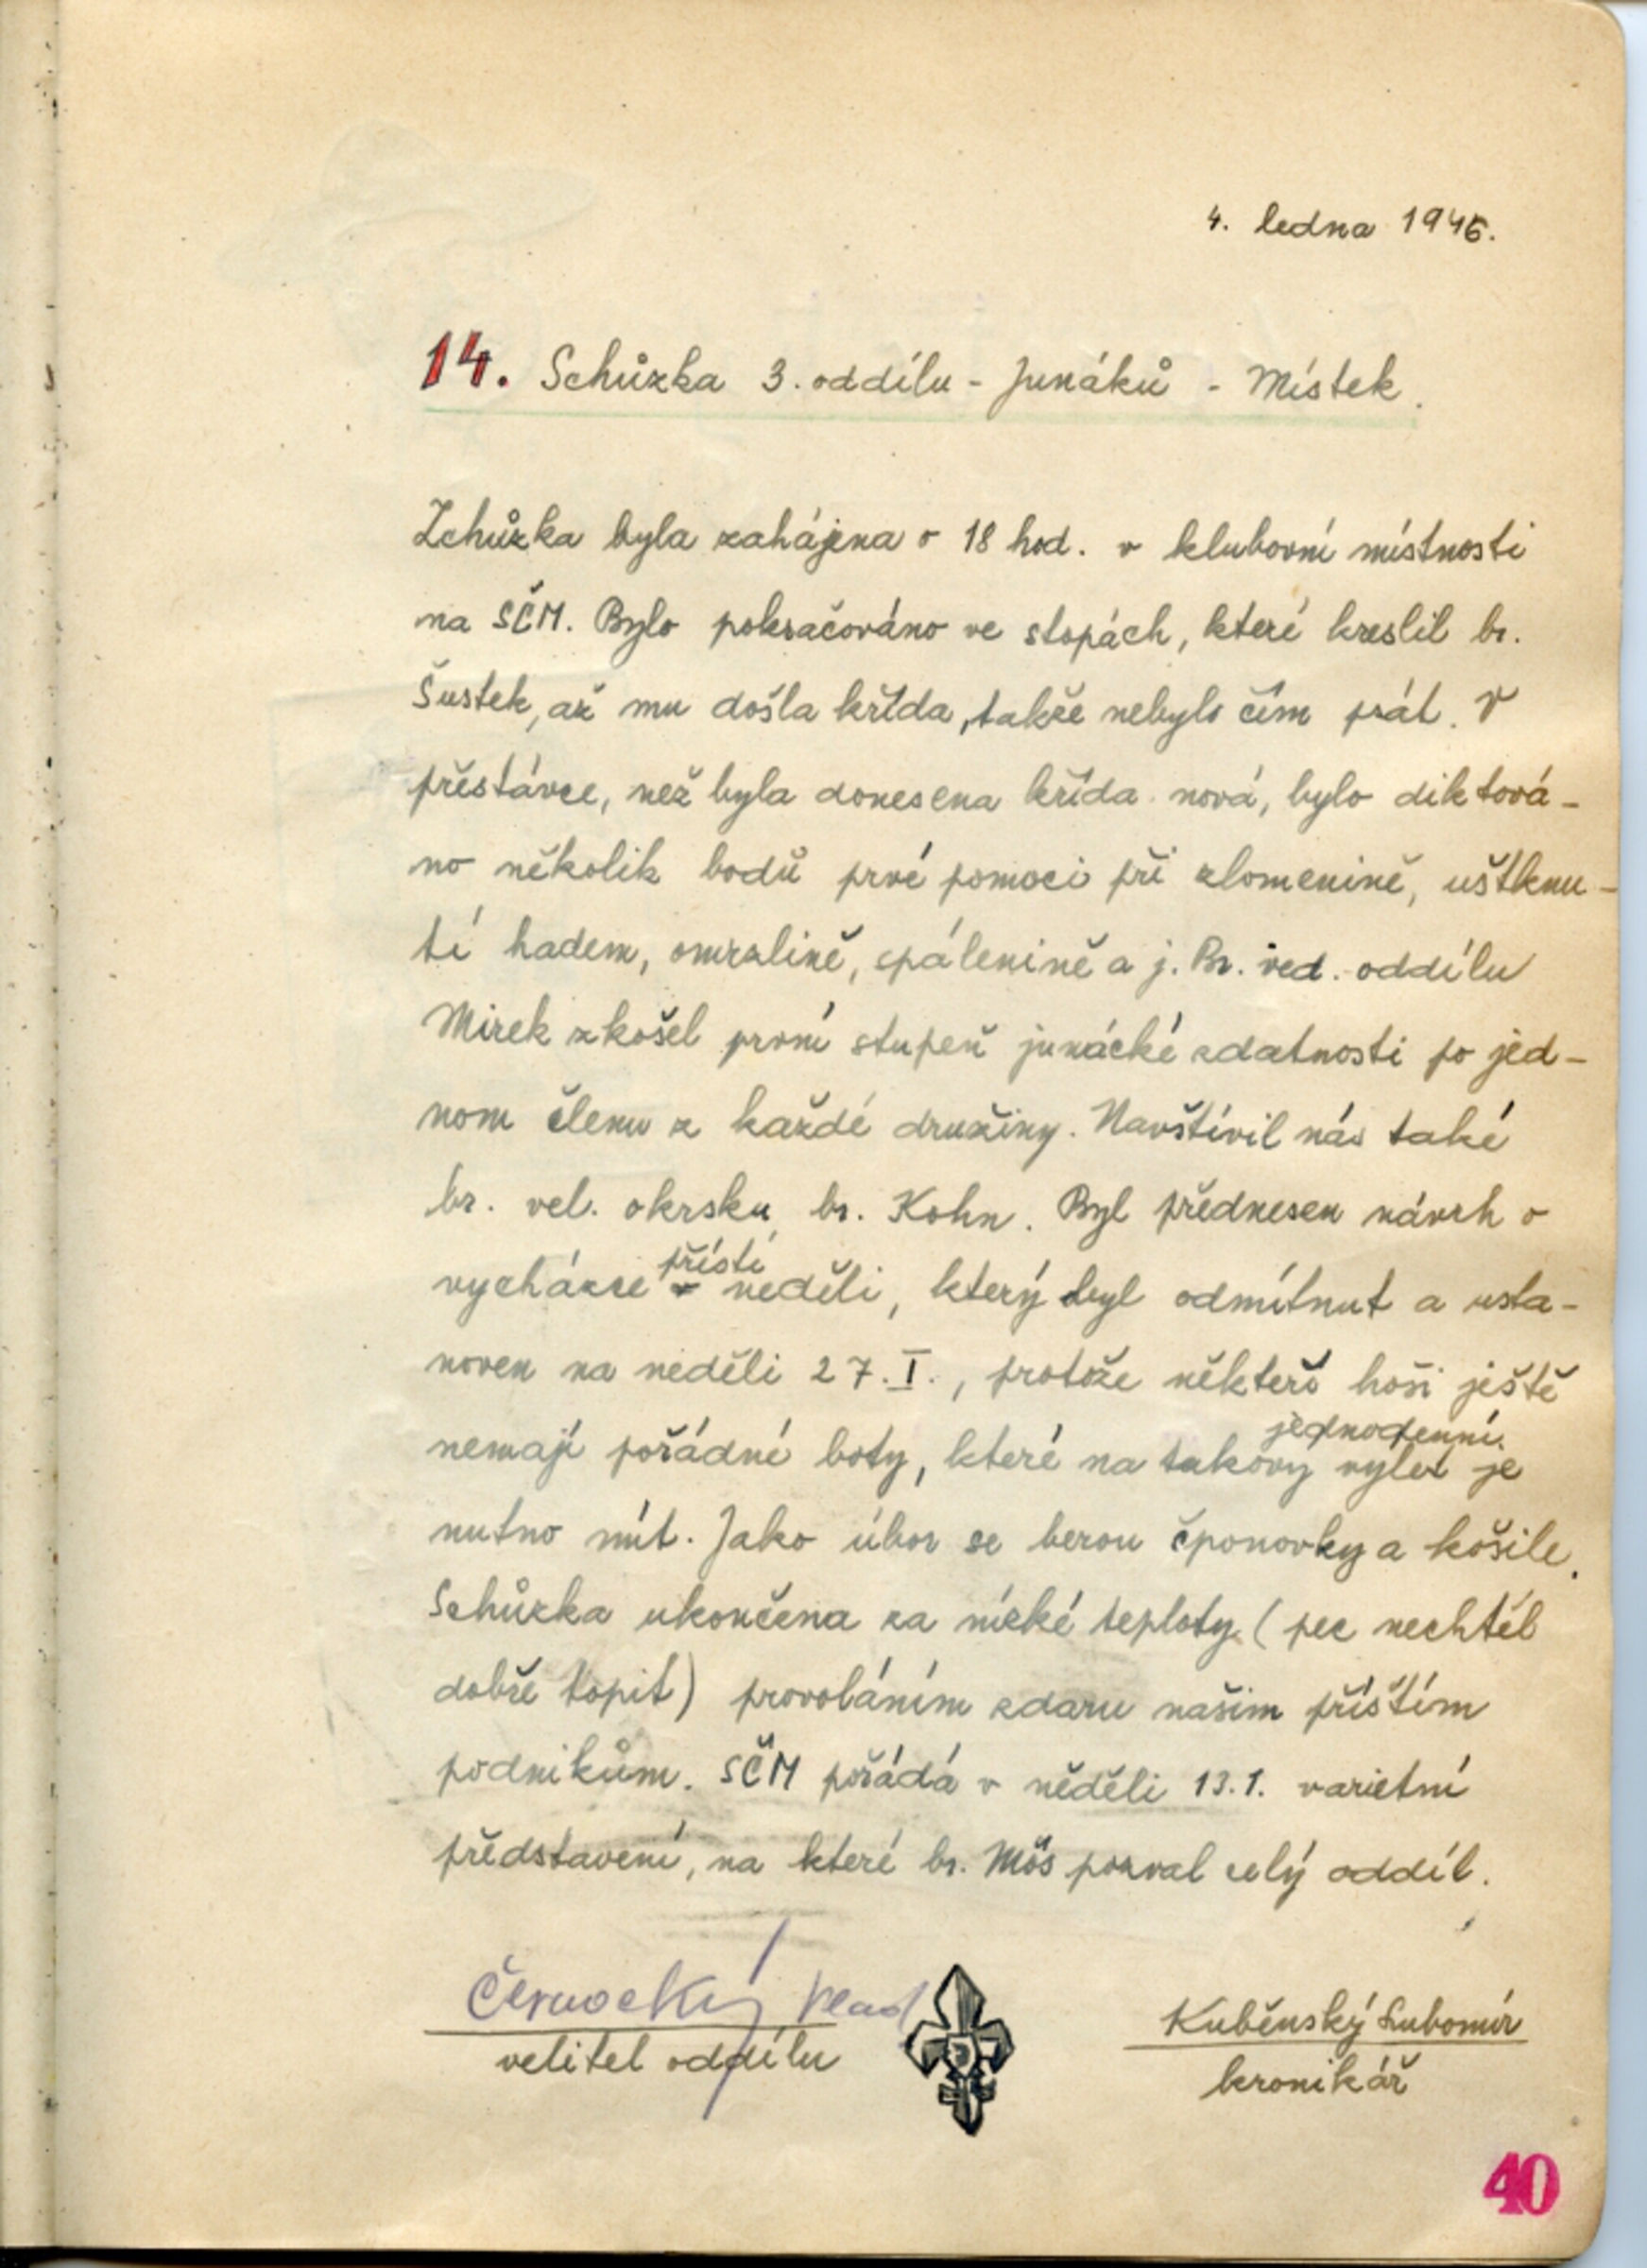 4. ledna 1946.
14. Schůzka 3. oddílu - Junáků - Místek.
Zchůzka byla zahájena o 18 hod. v klubovní místnosti
na SČM. Bylo pokračováno ve stopách, které kreslil br.
Šustek, až mu došla křída, takže nebylo čím psát. V
přestávce, než byla donesena křída nová, bylo diktová-
no několik bodů prvé pomoci při zlomenině, uštknu-
tí hadem, omrzlině, spálenině a j. Br. ved. oddílu
Mirek zkošel první stupeň junácké zdatnosti po jed-
nom členu z každé družiny. Navštívil nás také
br. vel. okrsku, br. Kohn. Byl přednesen návrh o
vycházce příští neděli, který byl odmítnut a usta-
noven na neděli 27. I., protože někteří hoši ještě
nemají pořádné boty, které na takový jednodenní výlet je
nutno mít. Jako úbor se berou šponovky a košile.
Schůzka ukončena za nízké teploty (pec nechtěl
dobře topit) provoláním zdaru našim příštím
podnikům. SČM pořádá v něděli 13.1. varietní
představení, na které br. Mös pozval celý oddíl.
Černocký Vlad
velitel oddílu
Kuběnský Lubomír
kronikář
40